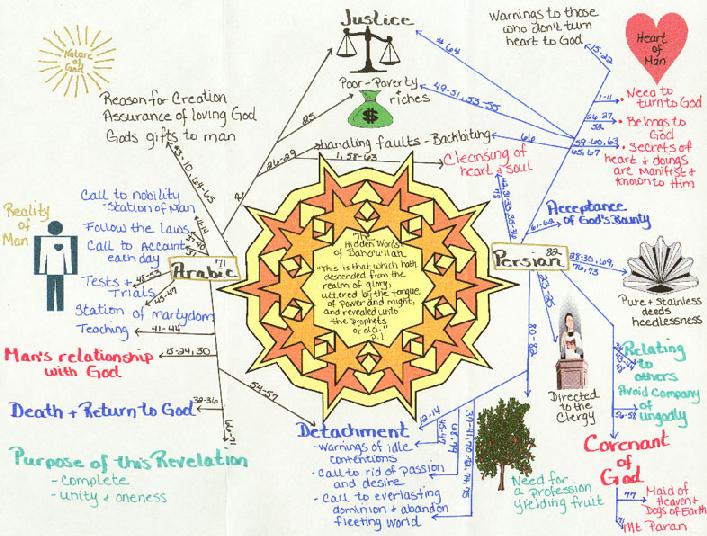 Justice
Warnings to those
who don't turn
heart to God
Heart
of
Man
Nature
of
God
#64
15-22
Poor - Poverty
riches
$
Reason for Creation
Assurance of loving God
Gods gifts to man
1-11
• Need to
turn to God
• Belongs to
God
• Secrets of
heart & doings
are manifest &
known to Him
49-51, 53-55
handling faults - Backbiting
66
26-29
1, 58-63
Cleansing of
heart & soul
59-60, 63
65, 67
Call to nobility
- Station of Man
Follow the laws
Call to Account
each day
Tests +
Trials
Station of martyrdom
Teaching
Reality
of
Man
Arabic
71
Persian
82
Acceptance
of God's Bounty
61-62
"The
Hidden Words
of Baha'u'llah
"This is that which hath
descended from the
realm of glory,
uttered by the tongue
of power and might,
and revealed unto
the Prophets
of old."
p.1
Pure + Stainless
deeds
heedlessness
Man's relationship
with God
Death + Return to God
54-57
80-82
Directed
to the
Clergy
Relating
to
others
Avoid Company
of
ungodly
56-58
Detachment
12-14
- Warnings of idle
contentions
- Call to rid of passion
and desire
- Call to everlasting
dominion & abandon
fleeting world
Purpose of this Revelation
- Complete
- Unity & oneness
Need for
a profession
yielding fruit
Covenant
of
God
77
Maid of
Heaven +
Dogs of Earth
Mt Paran